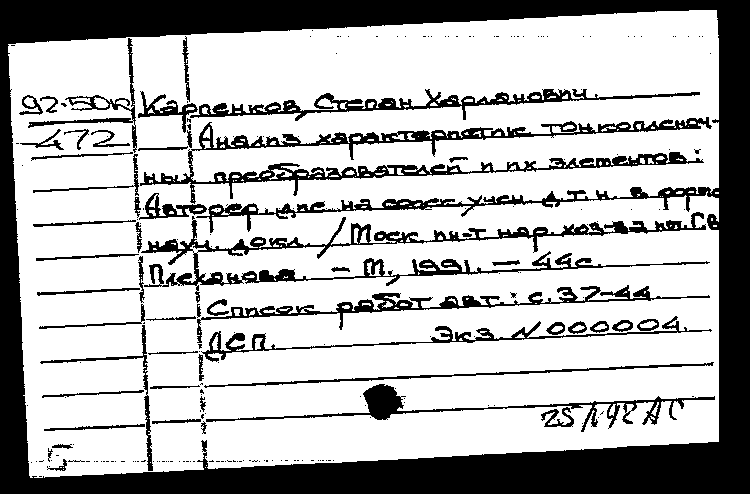 92-50к Карпенков, Степан Харланович.
472 Анализ характеристик тонкопленоч-
ных преобразователей и их элементов:
Автореф. дис на соиск учен. д.т.н. в форме
науч. докл. / Моск ин-т нар. хоз-ва им. Г.В
Плеханова. - М., 1991. - 44с.
Список работ авт.: с. 37-44.
ДСП. Экз. N 000004.
25/V-92 АС
5